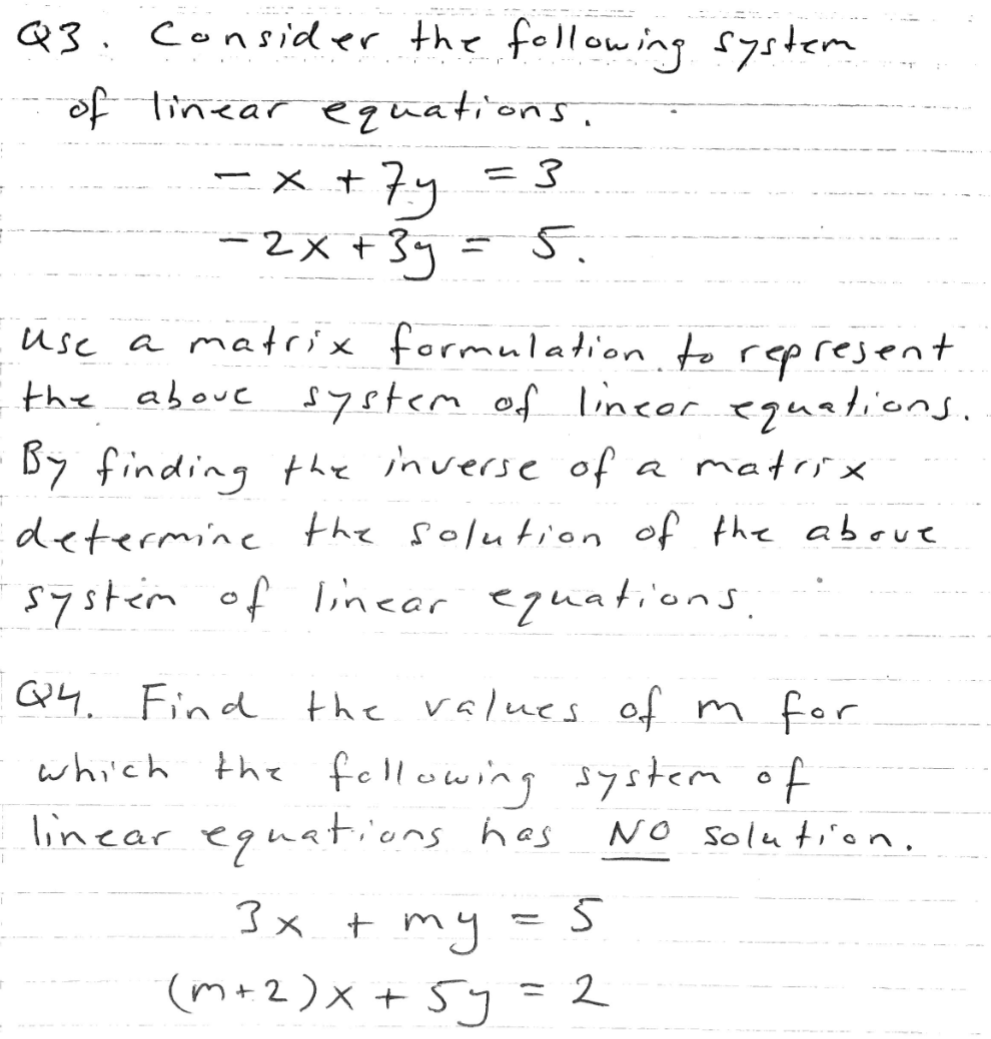 Q3. Consider the following system
of linear equations.
- x + 7y = 3
- 2x + 3y = 5.
Use a matrix formulation to represent
the above system of linear equations.
By finding the inverse of a matrix
determine the solution of the above
system of linear equations.
Q4. Find the values of m for
which the following system of
linear equations has NO solution.
3x + my = 5
(m+2)x + 5y = 2